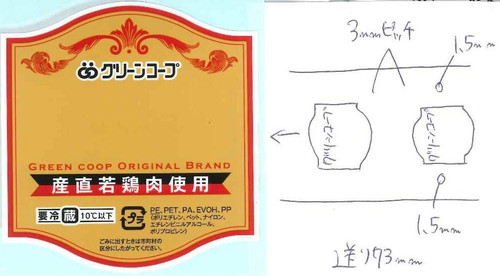 グリーンコープ
GREEN COOP ORIGINAL BRAND
産直若鶏肉使用
要冷蔵 10℃以下
プラ
PE, PET, PA, EVOH, PP
(ポリエチレン、ペット、ナイロン、
エチレンビニルアルコール、
ポリプロピレン)
ごみに出すときは市町村の
区分にしたがってください。
3mmピッチ
1.5mm
1.5mm
送り73mm